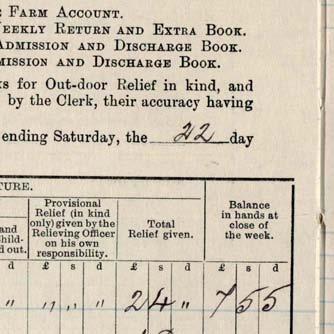 FARM ACCOUNT.
WEEKLY RETURN AND EXTRA BOOK.
ADMISSION AND DISCHARGE BOOK.
MISSION AND DISCHARGE BOOK.
ks for Out-door Relief in kind, and
by the Clerk, their accuracy having
ending Saturday, the 22 day
TURE.
and
Child-
d out.
Provisional
Relief (in kind
only) given by the
Relieving Officer
on his own
responsibility.
Total
Relief given.
Balance
in hands at
close of
the week.
d £ s d £ s d £ s d
" " " " 2 4 " 7 5 5